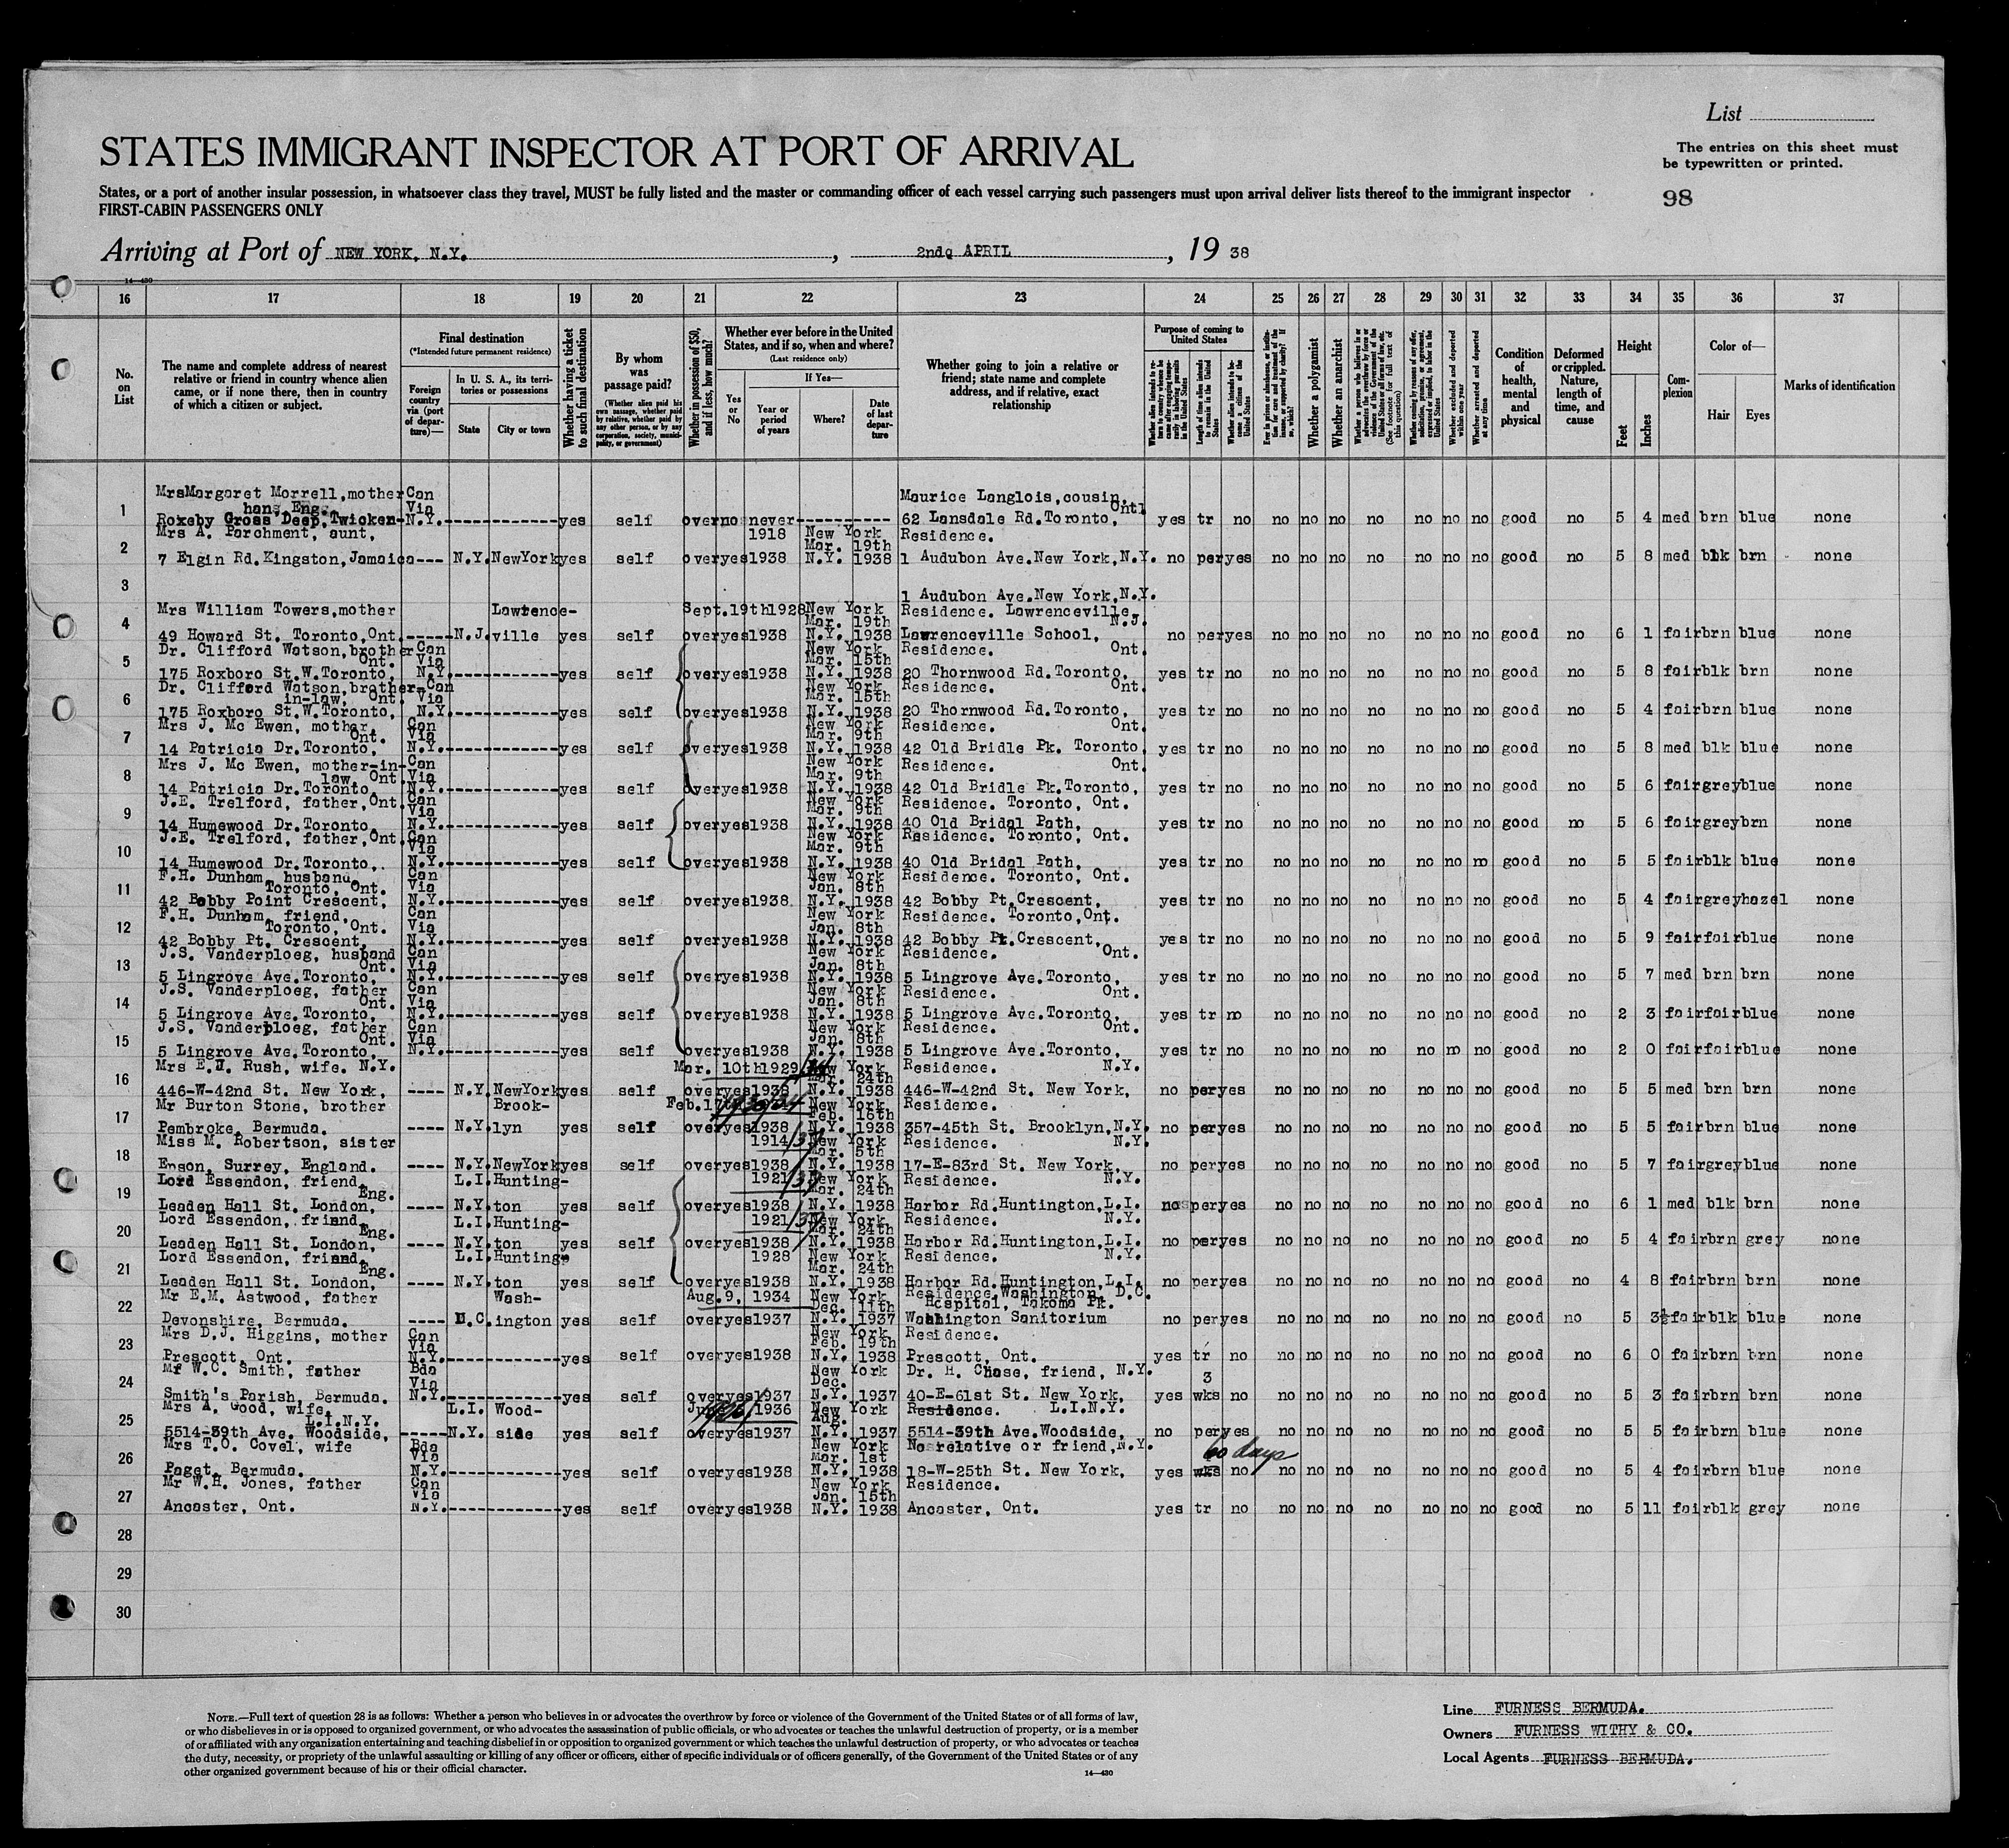 List
STATES IMMIGRANT INSPECTOR AT PORT OF ARRIVAL
The entries on this sheet must
be typewritten or printed.
States, or a port of another insular possession, in whatsoever class they travel, MUST be fully listed and the master or commanding officer of each vessel carrying such passengers must upon arrival deliver lists thereof to the immigrant inspector
FIRST-CABIN PASSENGERS ONLY
98
Arriving at Port of NEW YORK, N.Y. , 2nd APRIL , 19 38
14—430
16 17 18 19 20 21 22 23 24 25 26 27 28 29 30 31 32 33 34 35 36 37
No. on List
The name and complete address of nearest relative or friend in country whence alien came, or if none there, then in country of which a citizen or subject.
Final destination
(*Intended future permanent residence)
Foreign country via (port of departure)—
In U. S. A., its territories or possessions
State City or town
Whether having a ticket to such final destination
By whom was passage paid?
(Whether alien paid his own passage, whether paid by relative, whether paid by any other person, or by any corporation, society, municipality, or government)
Whether in possession of $50, and if less, how much?
Whether ever before in the United States, and if so, when and where?
(Last residence only)
Yes or No
If Yes—
Year or period of years
Where?
Date of last departure
Whether going to join a relative or friend; state name and complete address, and if relative, exact relationship
Purpose of coming to United States
Length of time alien intends to remain in the United States
Whether alien intends to become a citizen of the United States
Whether a polygamist
Whether an anarchist
Whether excluded and deported within one year
Whether arrested and deported at any time
Condition of health, mental and physical
Deformed or crippled. Nature, length of time, and cause
Height
Feet Inches
Complexion
Color of—
Hair Eyes
Marks of identification
1 MrsMargaret Morrell, mother Can Maurice Langlois, cousin,
hans, Eng. Via Ont.
Roxeby Cross Deep, Twicken- N.Y. yes self over no never 62 Lansdale Rd. Toronto, yes tr no no no no no no no no good no 5 4 med brn blue none
2 Mrs A. Parchment, aunt, 1918 New York Residence.
Mar. 19th
7 Elgin Rd. Kingston, Jamaica N.Y. NewYork yes self over yes 1938 N.Y. 1938 1 Audubon Ave. New York, N.Y. no per yes no no no no no no no good no 5 8 med blk brn none
3 1 Audubon Ave. New York, N.Y.
4 Mrs William Towers, mother Lawrence- Sept. 19th 1928 New York Residence. Lawrenceville,
Mar. 19th N.J.
49 Howard St. Toronto, Ont. N.J. ville yes self over yes 1938 N.Y. 1938 Lawrenceville School, no per yes no no no no no no no good no 6 1 fair brn blue none
5 Dr. Clifford Watson, brother Can New York Residence. Ont.
Ont. Via Mar. 15th
175 Roxboro St. W. Toronto, N.Y. yes self over yes 1938 N.Y. 1938 20 Thornwood Rd. Toronto, yes tr no no no no no no no no good no 5 8 fair blk brn none
6 Dr. Clifford Watson, brother- Can New York Residence. Ont.
in-law, Ont. Via Mar. 15th
175 Roxboro St. W. Toronto, N.Y. yes self over yes 1938 N.Y. 1938 20 Thornwood Rd. Toronto, yes tr no no no no no no no no good no 5 4 fair brn blue none
7 Mrs J. Mc Ewen, mother, Can New York Residence. Ont.
Ont. Via Mar. 9th
14 Patricia Dr. Toronto, N.Y. yes self over yes 1938 N.Y. 1938 42 Old Bridle Pk. Toronto, yes tr no no no no no no no no good no 5 8 med blk blue none
8 Mrs J. Mc Ewen, mother-in- Can New York Residence. Ont.
law, Ont. Via Mar. 9th
14 Patricia Dr. Toronto, N.Y. yes self over yes 1938 N.Y. 1938 42 Old Bridle Pk. Toronto, yes tr no no no no no no no no good no 5 6 fair grey blue none
9 J.E. Trelford, father, Ont. Can New York Residence. Toronto, Ont.
Via Mar. 9th
14 Humewood Dr. Toronto, N.Y. yes self over yes 1938 N.Y. 1938 40 Old Bridal Path, yes tr no no no no no no no no good no 5 6 fair grey brn none
10 J.E. Trelford, father, Ont. Can New York Residence. Toronto, Ont.
Via Mar. 9th
14 Humewood Dr. Toronto, N.Y. yes self over yes 1938 N.Y. 1938 40 Old Bridal Path, yes tr no no no no no no no no good no 5 5 fair blk blue none
11 F.H. Dunham, husband, Can New York Residence. Toronto, Ont.
Toronto, Ont. Via Jan. 8th
42 Bobby Point Crescent, N.Y. yes self over yes 1938 N.Y. 1938 42 Bobby Pt. Crescent, yes tr no no no no no no no no good no 5 4 fair grey hazel none
12 F.H. Dunham, friend, Can New York Residence. Toronto, Ont.
Toronto, Ont. Via Jan. 8th
42 Bobby Pt. Crescent, N.Y. yes self over yes 1938 N.Y. 1938 42 Bobby Pt. Crescent, yes tr no no no no no no no no good no 5 9 fair fair blue none
13 J.S. Vanderploeg, husband Can New York Residence. Ont.
Ont. Via Jan. 8th
5 Lingrove Ave. Toronto, N.Y. yes self over yes 1938 N.Y. 1938 5 Lingrove Ave. Toronto, yes tr no no no no no no no no good no 5 7 med brn brn none
14 J.S. Vanderploeg, father Can New York Residence. Ont.
Ont. Via Jan. 8th
5 Lingrove Ave. Toronto, N.Y. yes self over yes 1938 N.Y. 1938 5 Lingrove Ave. Toronto, yes tr no no no no no no no no good no 2 3 fair fair blue none
15 J.S. Vanderploeg, father Can New York Residence. Ont.
Ont. Via Jan. 8th
5 Lingrove Ave. Toronto, N.Y. yes self over yes 1938 N.Y. 1938 5 Lingrove Ave. Toronto, yes tr no no no no no no no no good no 2 0 fair fair blue none
16 Mrs E.J. Rush, wife. N.Y. Mar. 10th 1929 New York Residence. N.Y.
Mar. 24th
446-W-42nd St. New York, N.Y. NewYork yes self over yes 1938 N.Y. 1938 446-W-42nd St. New York, no per yes no no no no no no no good no 5 5 med brn brn none
17 Mr Burton Stone, brother Brook- Feb. 17 New York Residence.
Feb. 15th
Pembroke, Bermuda. N.Y. lyn yes self over yes 1938 N.Y. 1938 357-45th St. Brooklyn, N.Y. no per yes no no no no no no no good no 5 5 fair brn blue none
18 Miss M. Robertson, sister 1914/37 New York Residence. N.Y.
Mar. 5th
Epson, Surrey, England. N.Y. NewYork yes self over yes 1938 N.Y. 1938 17-E-83rd St. New York, no per yes no no no no no no no good no 5 7 fair grey blue none
19 Lord Essendon, friend, L.I. Hunting- 1921/37 New York Residence. N.Y.
Eng. Mar. 24th
Leaden Hall St. London, N.Y. ton yes self over yes 1938 N.Y. 1938 Harbor Rd. Huntington, L.I. no per yes no no no no no no no good no 6 1 med blk brn none
20 Lord Essendon, friend, L.I. Hunting- 1921/37 New York Residence. N.Y.
Eng. Mar. 24th
Leaden Hall St. London, N.Y. ton yes self over yes 1938 N.Y. 1938 Harbor Rd. Huntington, L.I. no per yes no no no no no no no good no 5 4 fair brn grey none
21 Lord Essendon, friend, L.I. Hunting- 1928 New York Residence. N.Y.
Eng. Mar. 24th
Leaden Hall St. London, N.Y. ton yes self over yes 1938 N.Y. 1938 Harbor Rd. Huntington, L.I. no per yes no no no no no no no good no 4 8 fair brn brn none
22 Mr E.M. Astwood, father Wash- Aug. 9, 1934 New York Residence, Washington, D.C.
Dec. 11th Hospital, Takoma Pk.
Devonshire, Bermuda. D.C. ington yes self over yes 1937 N.Y. 1937 Washington Sanitorium no per yes no no no no no no no good no 5 3½ fair blk blue none
23 Mrs D.J. Higgins, mother Can New York Residence.
Via Feb. 19th
Prescott, Ont. N.Y. yes self over yes 1938 N.Y. 1938 Prescott, Ont. yes tr no no no no no no no no good no 6 0 fair brn brn none
24 Mr W.C. Smith, father Bda New York Dr. H. Chase, friend, N.Y.
Via Dec. 3
Smith's Parish, Bermuda. N.Y. yes self over yes 1937 N.Y. 1937 40-E-61st St. New York, yes wks no no no no no no no no good no 5 3 fair brn brn none
25 Mrs A. Good, wife, L.I. Wood- 1936 New York Residence. L.I.N.Y.
L.I.N.Y. Aug.
5514-39th Ave. Woodside, N.Y. side yes self over yes 1937 N.Y. 1937 5514-39th Ave. Woodside, no per yes no no no no no no no good no 5 5 fair brn blue none
26 Mrs T.O. Covel, wife Bda New York No relative or friend, N.Y.
Via Mar. 1st 60 days
Paget, Bermuda. N.Y. yes self over yes 1938 N.Y. 1938 18-W-25th St. New York, yes wks no no no no no no no no good no 5 4 fair brn blue none
27 Mr W.H. Jones, father Can New York Residence.
Via Jan. 15th
Ancaster, Ont. N.Y. yes self over yes 1938 N.Y. 1938 Ancaster, Ont. yes tr no no no no no no no no good no 5 11 fair blk grey none
28
29
30
NOTE.—Full text of question 28 is as follows: Whether a person who believes in or advocates the overthrow by force or violence of the Government of the United States or of all forms of law,
or who disbelieves in or is opposed to organized government, or who advocates the assassination of public officials, or who advocates or teaches the unlawful destruction of property, or is a member
of or affiliated with any organization entertaining and teaching disbelief in or opposition to organized government or which teaches the unlawful destruction of property, or who advocates or teaches
the duty, necessity, or propriety of the unlawful assaulting or killing of any officer or officers, either of specific individuals or of officers generally, of the Government of the United States or of any
other organized government because of his or their official character.
14—430
Line FURNESS BERMUDA.
Owners FURNESS WITHY & CO.
Local Agents FURNESS BERMUDA.